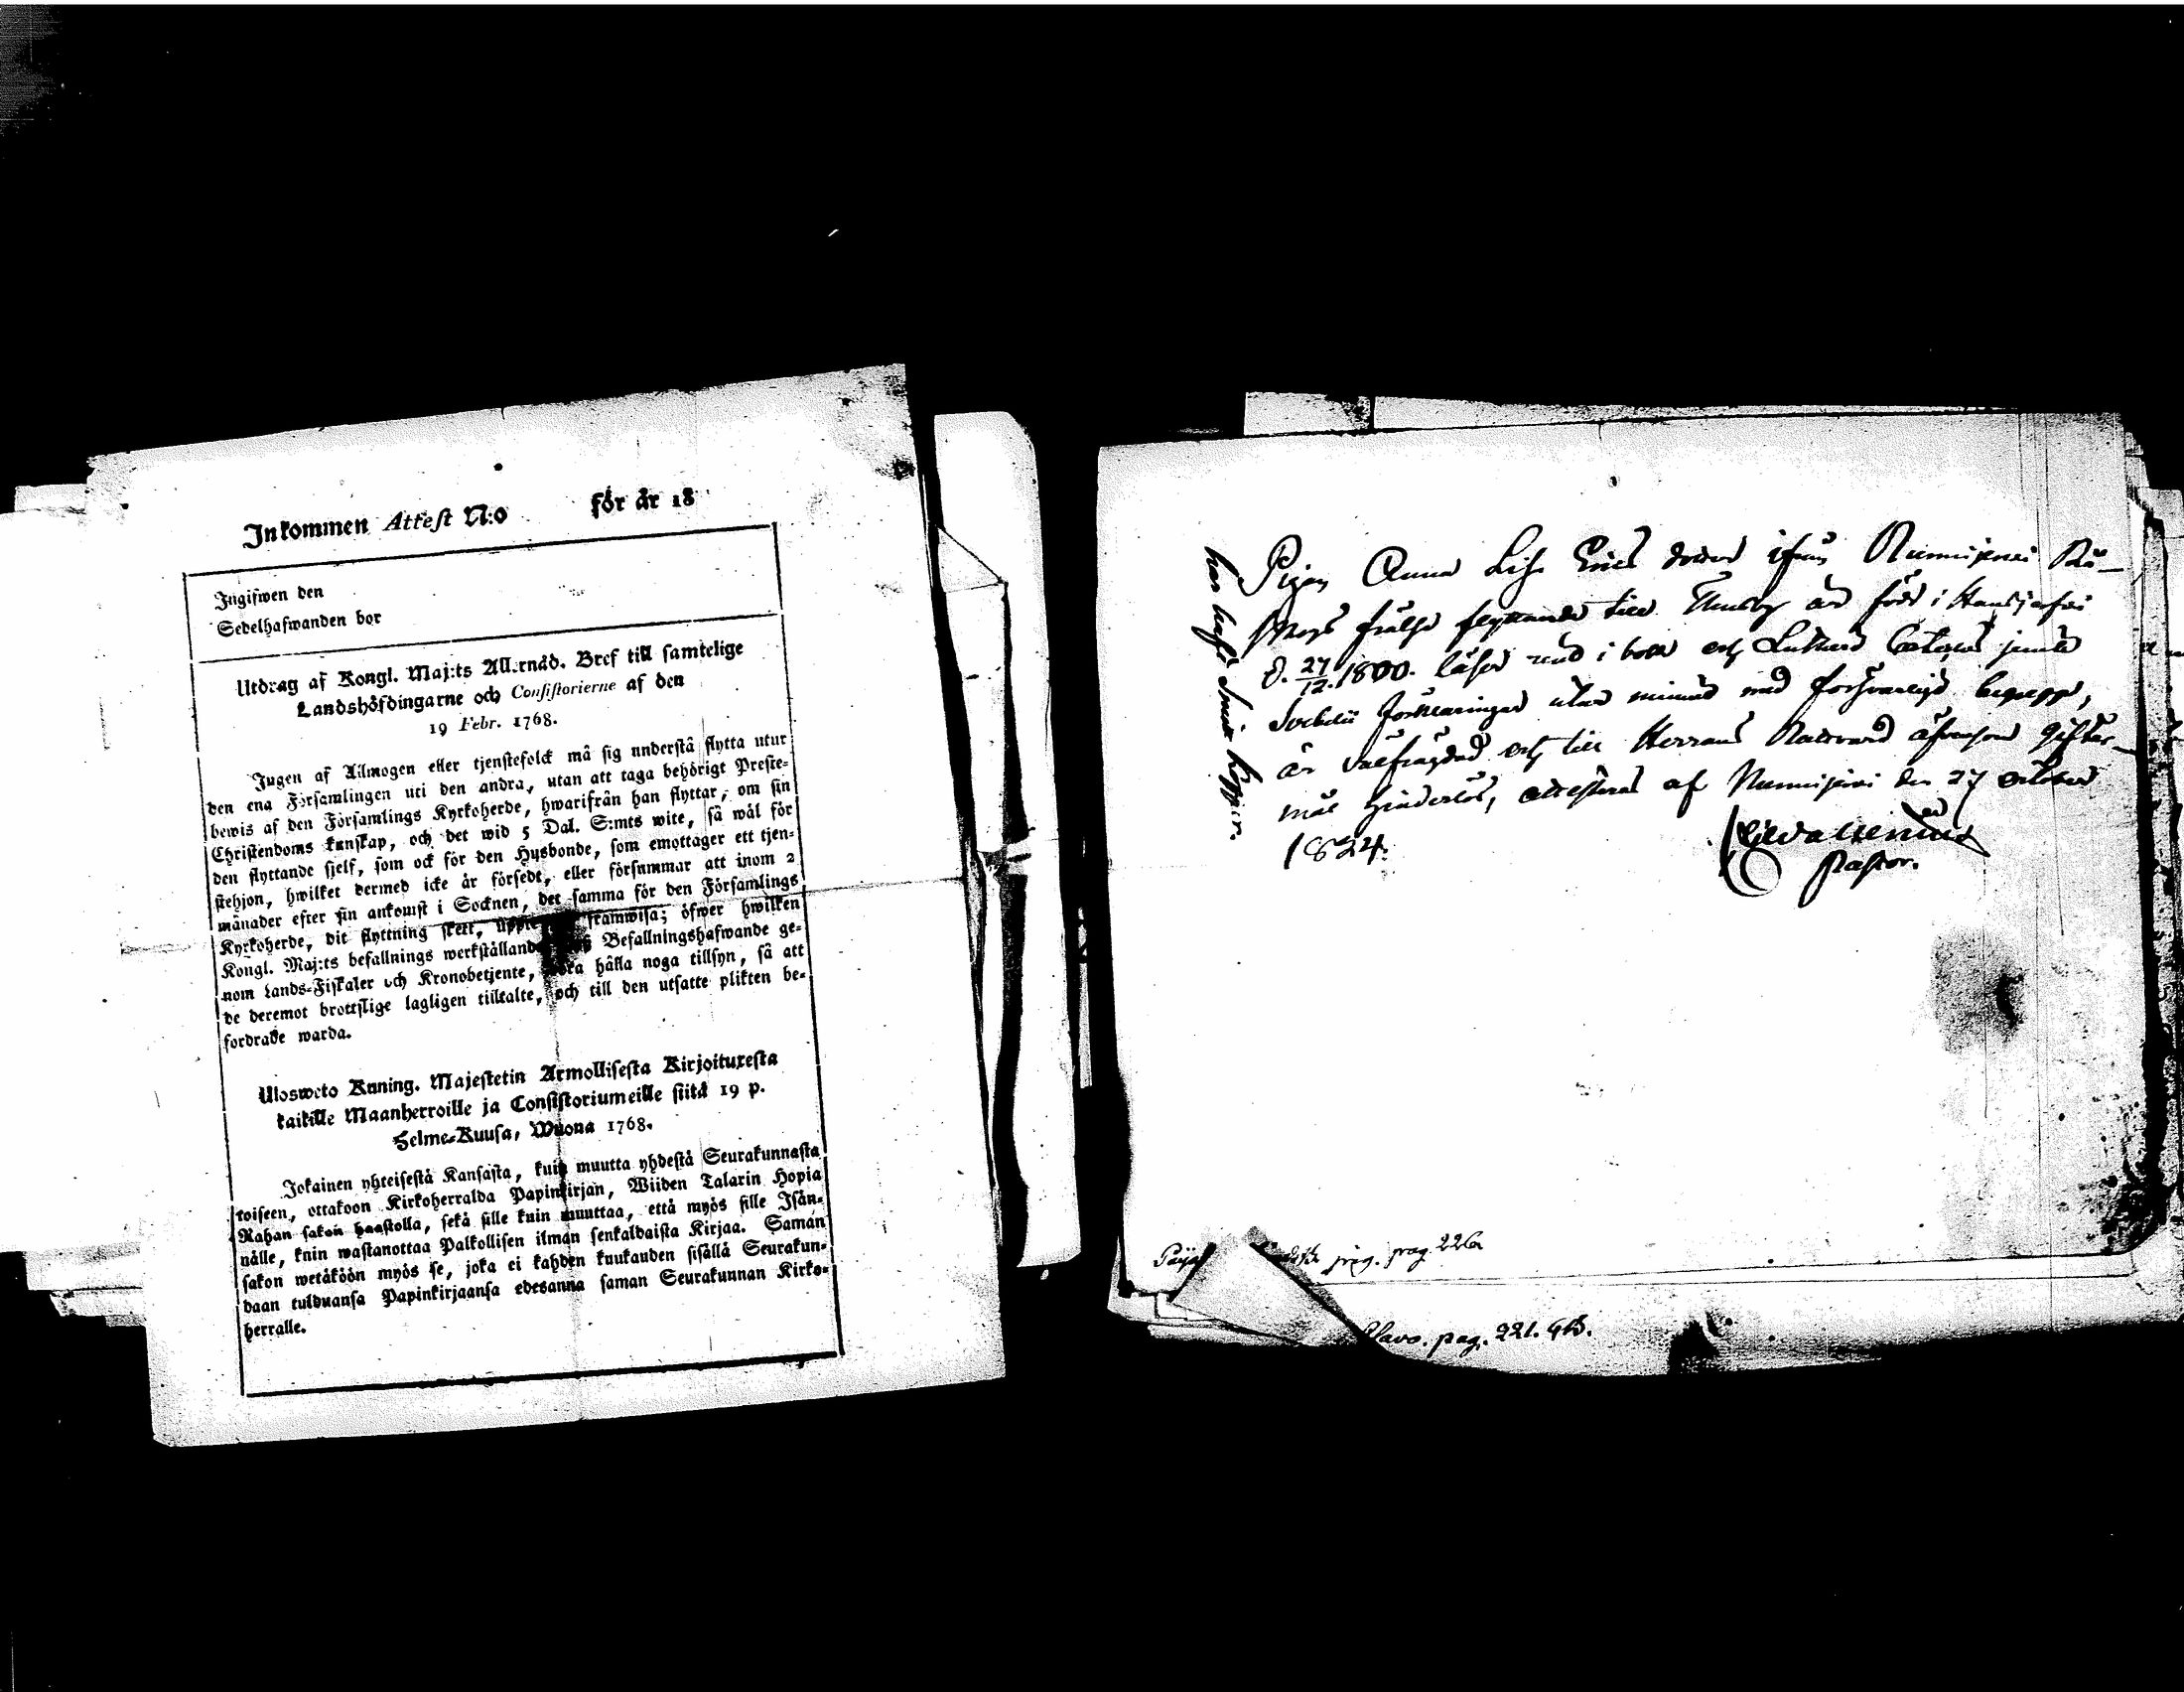 Inkommen Attest N:o för år 18
Ingifwen den
Sedelhafwanden bor
Utdrag af Kongl. Maj:ts Allernåd. Bref till samtelige
Landshöfdingarne och Consistorierne af den
19 Febr. 1768.
Ingen af Allmogen eller tjenstefolck må sig understå flytta utur
den ena Församlingen uti den andra, utan att taga behörigt Preste-
bewis af den Församlings Kyrkoherde, hwarifrån han flyttar, om sin
Christendoms kunskap, och det wid 5 Dal. S:mts wite, så wål för
den flyttande sjelf, som ock för den Husbonde, som emottager ett tjen-
stehjon, hwilket dermed icke är försedt, eller försummar att inom 2
månader efter sin ankomst i Socknen, det samma för den Församlings
Kyrkoherde, dit flyttning skett, framwisa; öfwer hwilken
Kongl. Maj:ts befallnings werkställande Befallningshafwande ge-
nom Lands-Fiskaler och Kronobetjente, hålla noga tillsyn, så att
de deremot brottslige lagligen tilltalte, och till den utsatte plikten be-
fordrade warda.
Ulosweto Kuning. Majestetin Armollisesta Kirjoituxesta
kaikille Maanherroille ja Consistoriumeille siitä 19 p.
Helme-Kuusa, Wuona 1768.
Jokainen yhteisestä Kansasta, kuin muutta yhdestä Seurakunnasta
toiseen, ottakoon Kirkoherralda Papinkirjan, Wiiden Talarin Hopia
Rahan sakon haastolla, sekä sille kuin muuttaa, että myös sille Isän-
nälle, knin wastanottaa Palkollisen ilman senkaldaista Kirjaa. Saman
sakon wetäköön myös se, joka ei kahden kuukauden sisällä Seurakun-
daan tulduansa Papinkirjaansa edesanna saman Seurakunnan Kirko-
herralle.
Pigan Anna Lisa Erics dotter ifrån Nummijervi
frälse flyttande till Thusby är född i Hausjerfvi
d. 27/12. 1800. läser ren i bok och Lutheri Cateches jemte
Svebelii förklaringar utan minnet med försvarligt begrepp,
är välfrägdad och till Herrans Nattvard äfvensom gifter-
mål hinderlös, attesteras af Nummijervi den 27 october
1824.
Pastor.
har haft Smitt koppor.
pig. pag. 226
pag. 221.